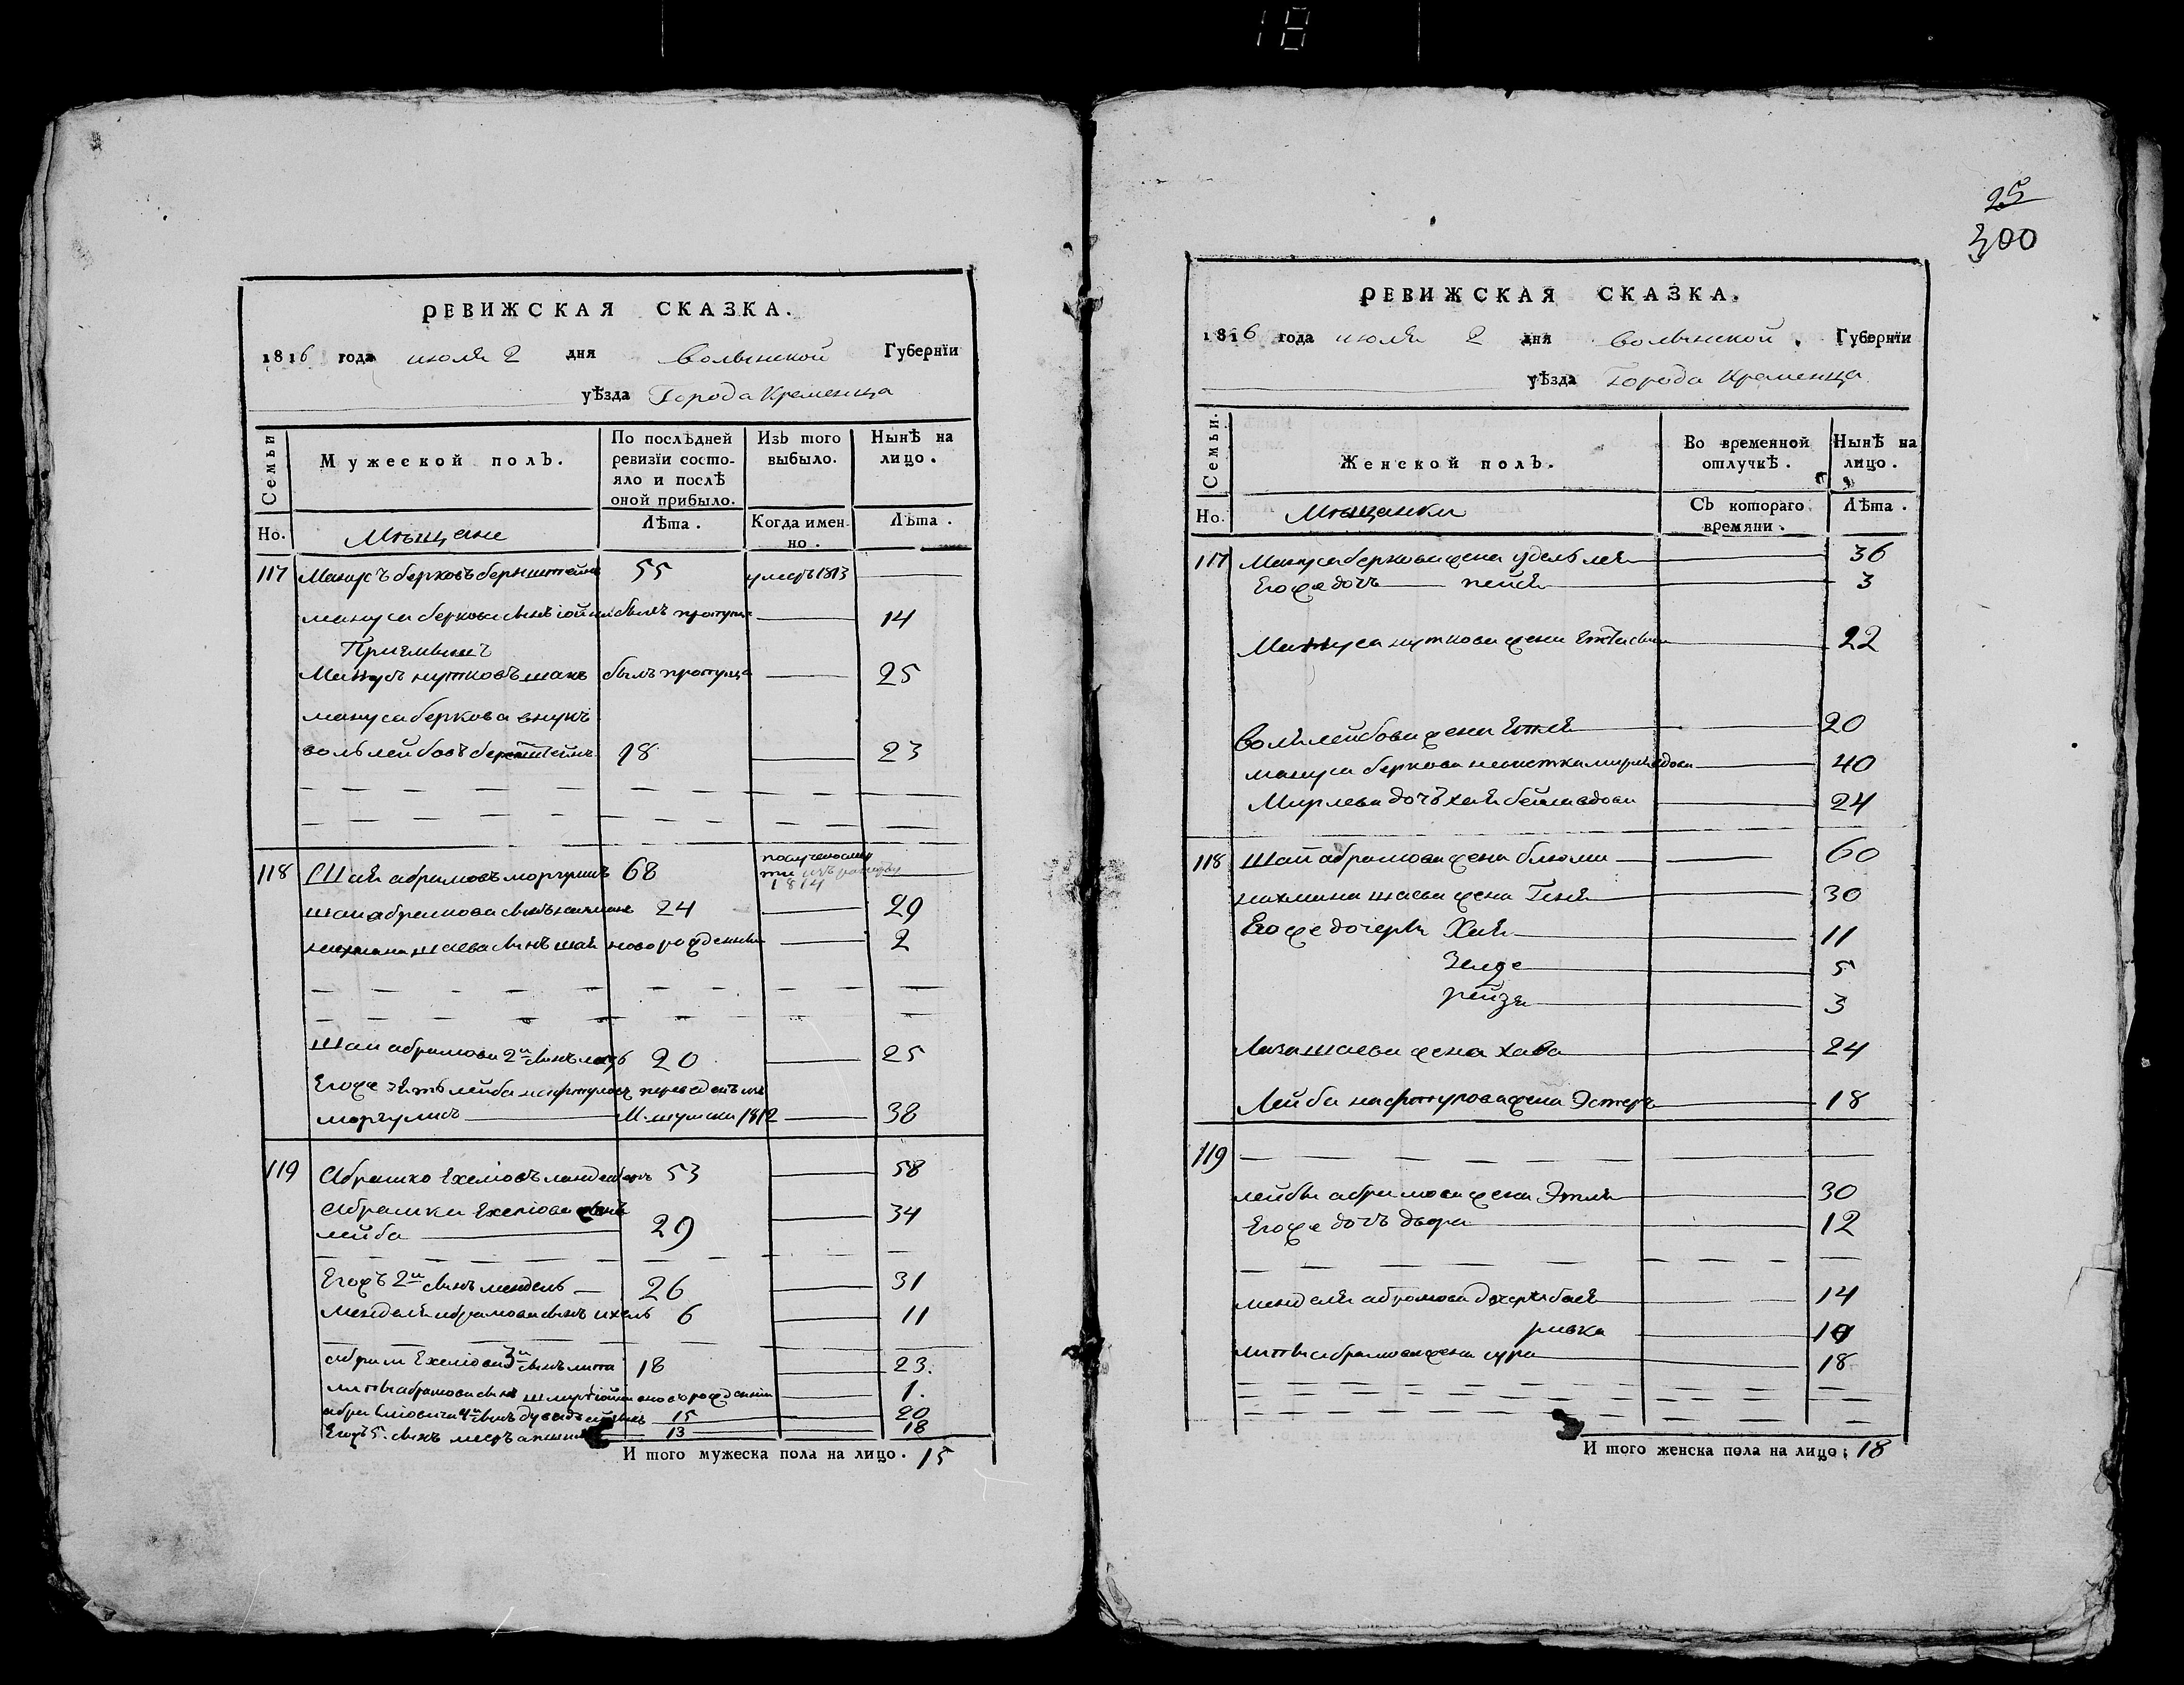 18
РЕВИЖСКАЯ СКАЗКА.
1816 года июля 2 дня Волынской Губернїи
уѣзда Города Кременца
Семьи
Мужеской полъ.
По послѣдней ревизїи состояло и послѣ оной прибыло.
Изъ того выбыло.
Нынѣ на лицо.
Но. Мѣщане
Лѣта.
Когда именно.
Лѣта.
117 Манусъ берковъ бернштейнъ 55 умеръ 1813
мануса беркова сынъ былъ 14
Манусъ нутковъ былъ 25
мануса беркова внукъ
воль лейбовъ бернштейнъ 18 23
118 Шая абрамовъ моргулисъ 68 1814
шаи абрамова сынъ нахманъ 24 29
нахмана шаева сынъ шая новорожденный 2
шаи абрамова 2й сынъ 20 25
Егоже зять лейба переведенъ изъ
моргулисъ М. шумска 1812 38
119 Абрашко Ехелiовъ 53 58
Абрашки Ехелiова сынъ
лейба 29 34
Егожъ 2й сынъ мендель 26 31
Менделя абрамова сынъ ихель 6 11
абрама Ехелiова 3й сынъ 18 23.
абрамова сынъ новорожденный 1.
4й сынъ 15 20
Егожъ 5. сынъ 13 18
И того мужеска пола на лицо. 15
25
300
РЕВИЖСКАЯ СКАЗКА.
1816 года июля 2 дня Волынской Губернїи
уѣзда Города Кременца
Семьи.
Женской полъ.
Во временной отлучкѣ.
Нынѣ на лицо.
Но. Мѣщанки
Съ котораго времяни.
Лѣта.
117 Мануса беркова жена удель лея 36
Егоже дочь пейся 3
Мануса нуткова жена 22
Воля лейбова жена Етля 20
мануса беркова невестка вдова 40
дочь хая бейла вдова 24
118 Шаи абрамова жена блюма 60
нахмана шаева жена Геня 30
Егоже дочери Хая 11
Зелде 5
рейзя 3
шаева жена хава 24
Лейба жена Эстеръ 18
119
лейбы абрамова жена Этля 30
Егоже дочь двора 12
менделя абрамова дочери бася 14
ривка
абрамова жена сура 18
И того женска пола на лицо: 18